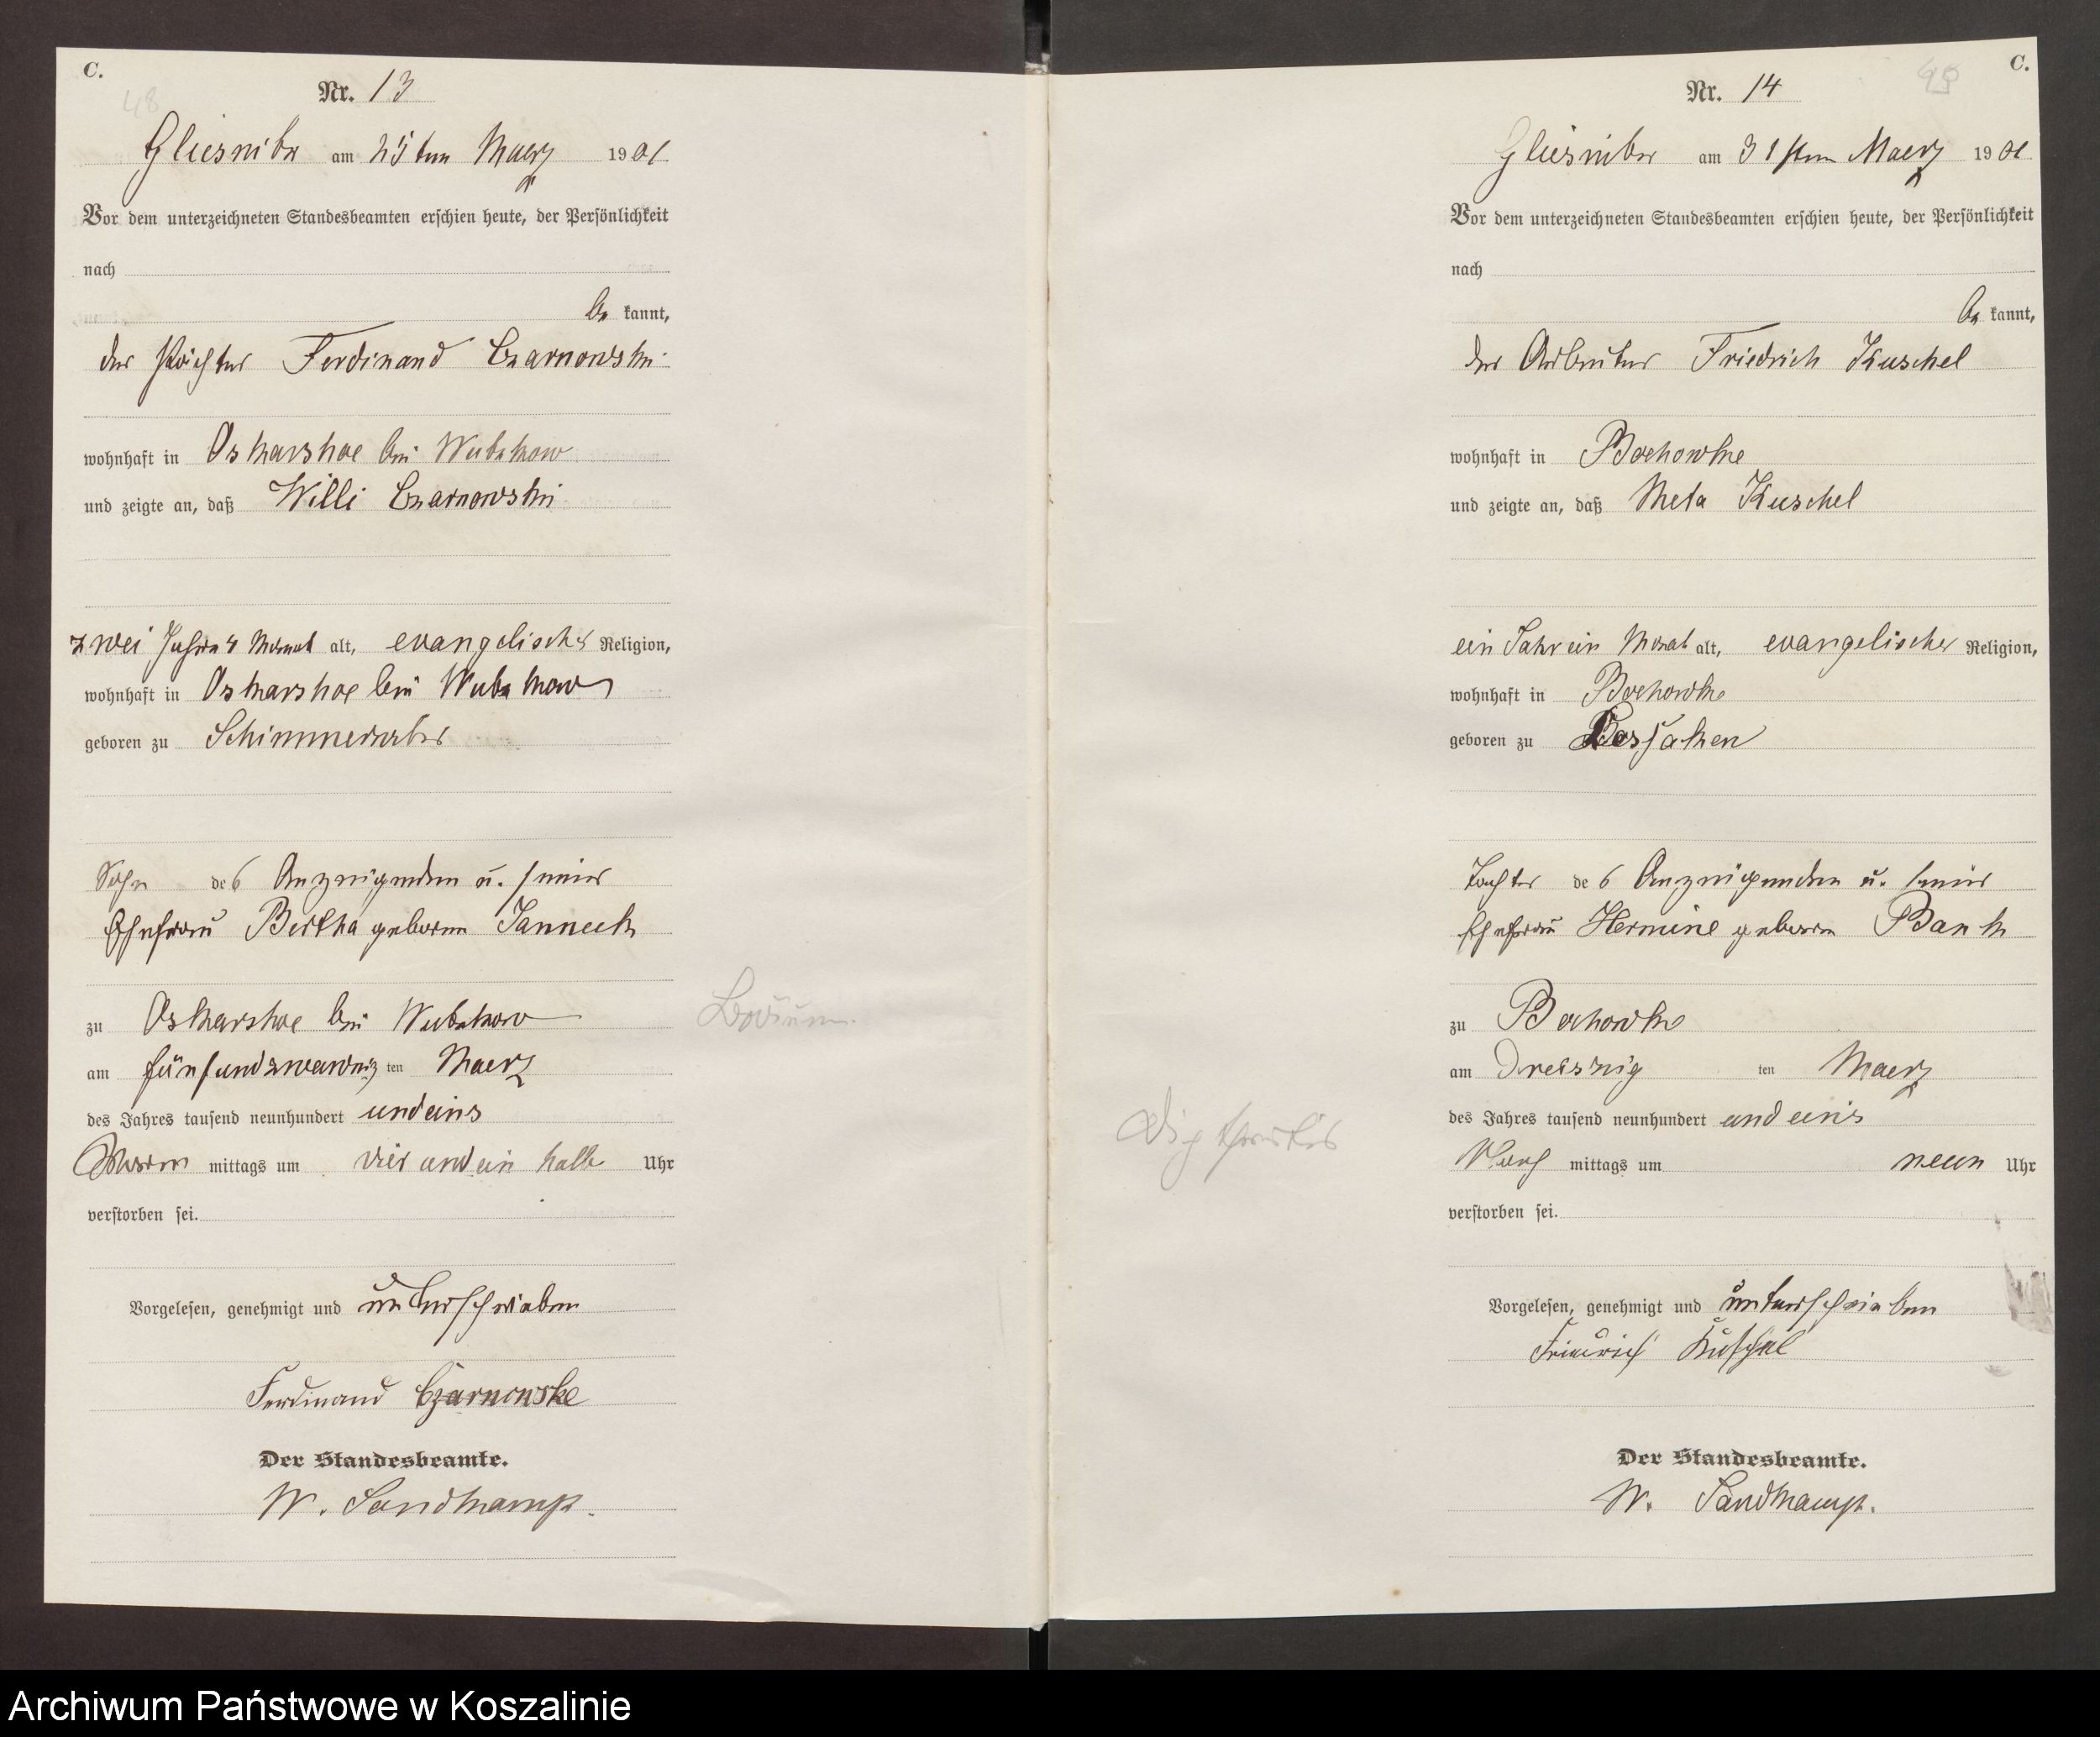 C.
48
Nr. 13
Gliesnitz am 25 ten Maerz 1901
Vor dem unterzeichneten Standesbeamten erschien heute, der Persönlichkeit
nach
be kannt,
der Pächter Ferdinand Czarnowski
wohnhaft in Oskarshoe bei Wutzkow
und zeigte an, daß Willi Czarnowski
zwei Jahre 4 Monat alt, evangelischer Religion,
wohnhaft in Oskarshoe bei Wutzkow
geboren zu Schimmerwitz
Sohn des Anzeigenden u. seiner
Ehefrau Bertha geboren Janneck
zu Oskarshoe bei Wutzkow
am fünfundzwanzig ten Maerz
des Jahres tausend neunhundert und eins
mittags um vier und ein halb Uhr
verstorben sei.
Vorgelesen, genehmigt und unterschrieben
Ferdinand Czarnowske
Der Standesbeamte.
W. Sandkamp.
C.
Nr. 14
Gliesnitz am 31 sten Maerz 1901
Vor dem unterzeichneten Standesbeamten erschien heute, der Persönlichkeit
nach
be kannt,
der Arbeiter Friedrich Kuschel
wohnhaft in Bochowke
und zeigte an, daß Meta Kuschel
ein Jahr ein Monat alt, evangelischer Religion,
wohnhaft in Bochowke
geboren zu
Tochter des Anzeigenden u. seiner
Ehefrau Hermine geboren Bank
zu Bochowke
am Dreiszig ten Maerz
des Jahres tausend neunhundert und eins
Nach mittags um neun Uhr
verstorben sei.
Vorgelesen, genehmigt und unterschrieben
Friedrich Kuschel
Der Standesbeamte.
W. Sandkamp.
Archiwum Państwowe w Koszalinie